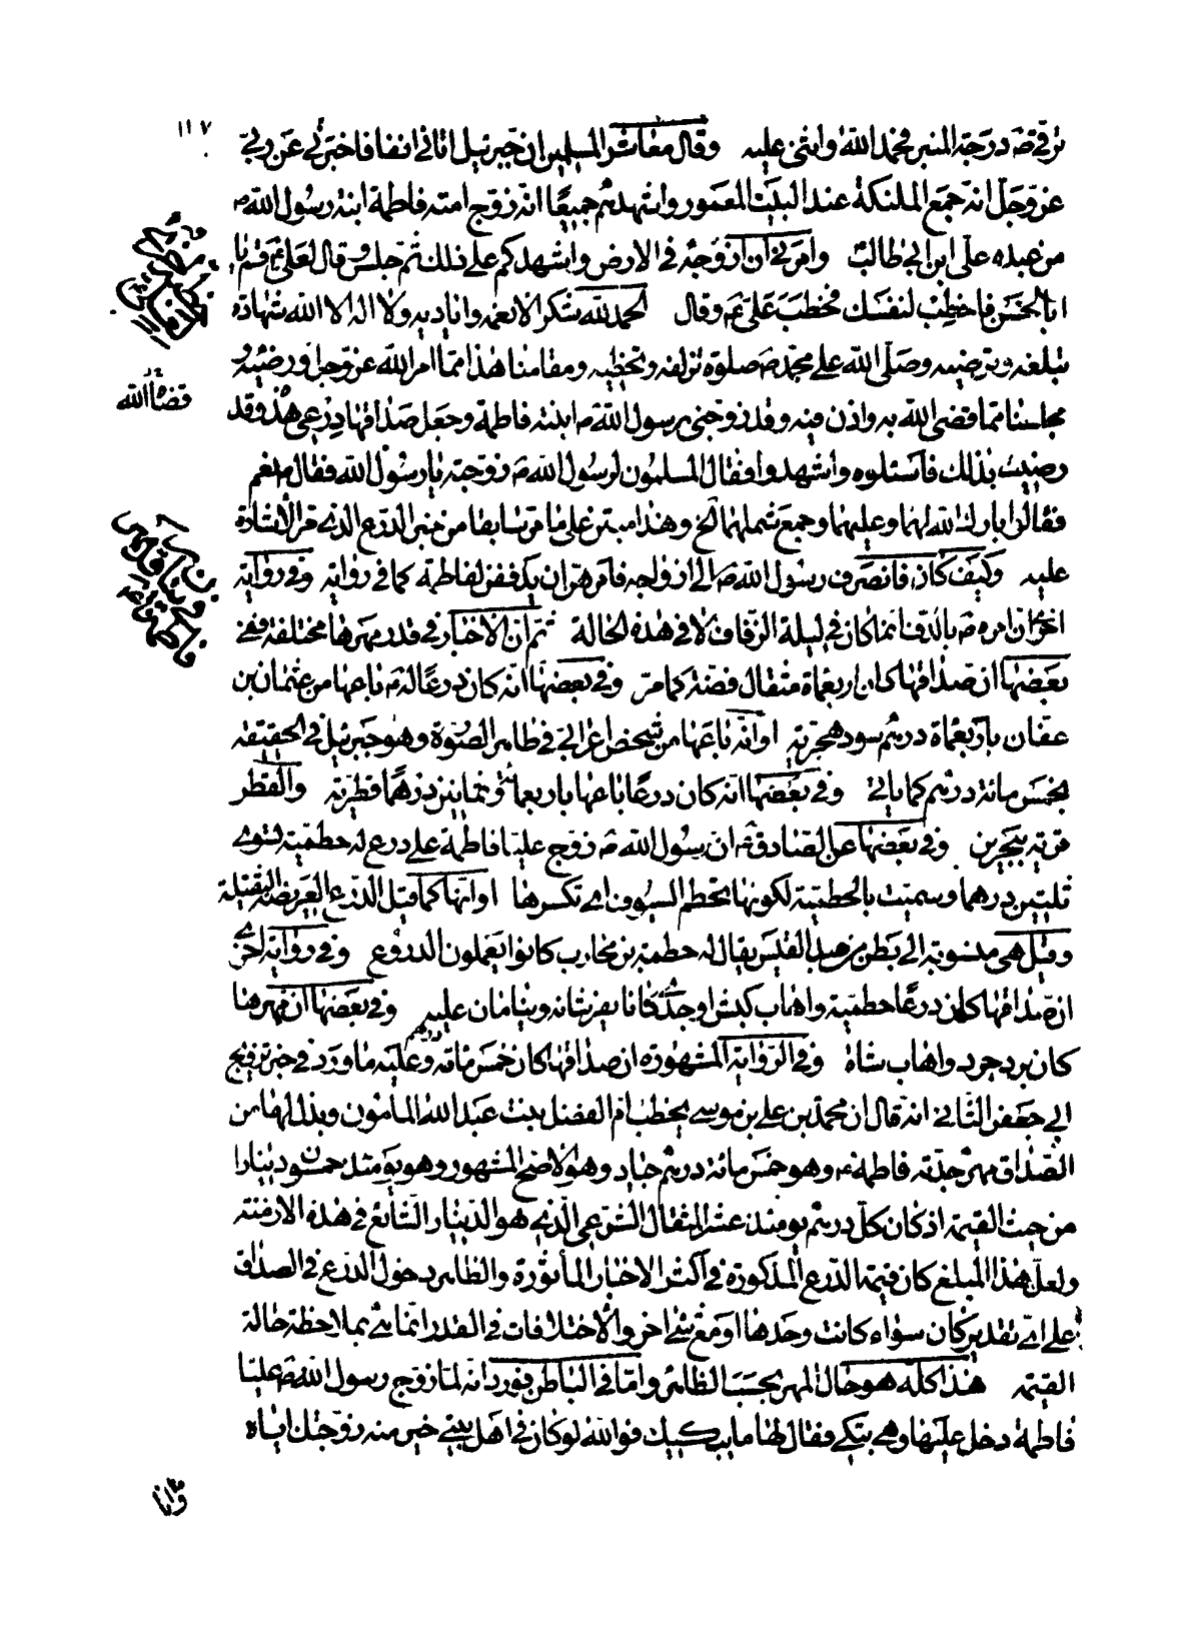 ١١٧
ترقى ص درجة المنبر فحمد الله واثنى عليه وقال معاشر المسلمين ان جبرئيل اتانى انفا فاخبرنى عن ربى
عز وجل انه جمع الملئكة عند البيت المعمور واشهدهم جميعا انه زوج امته فاطمة ابنة رسول الله ص
من عبده على ابن ابى طالب وامرنى ان ازوجه فى الارض واشهدكم على ذلك ثم جلس وقال لعلى ع قم يا
ابا الحسن فاخطب لنفسك فخطب على ع وقال الحمد لله شكرا لانعمه واياديه ولا اله الا الله شهادة
تبلغه وترضيه وصلى الله على محمد ص صلوة تزلفه وتحظيه ومقامنا هذا مما امر الله عز وجل ورضيه و
مجلسنا مما قضى الله به واذن فيه وقد زوجنى رسول الله ص ابنته فاطمة وجعل صداقها درعى هذا وقد
رضيت بذلك فاسئلوه واشهدوا فقال المسلمون لرسول الله ص زوجته يا رسول الله فقال ص نعم
فقالوا بارك الله لهما وعليهما وجمع شملهما الخ وهذا مبتن على ما مر سابقا من خبر الدرع الذى مر الاشارة
عليه وكيف كان فانصرف رسول الله ص الى ازواجه فامرهن ان يدففن لفاطمة كما فى رواية وفى رواية
اخرى ان امره ص بالدف انما كان فى ليلة الزفاف لا فى هذه الحالة ثم ان الاخبار فى قدر مهرها مختلفة ففى
بعضها ان صداقها كان اربعماة مثقال فضة كما مر وفى بعضها انه كان درعا له ع باعها من عثمان بن
عفان باربعماة درهم سود هجرية او انه باعها من شخص اعرابى فى ظاهر الصورة وهو جبرئيل فى الحقيقة
بخمس مائة درهم كما ياتى وفى بعضها انه كان درعا باعها باربعمائة وثمانين درهما قطرية والقطر
قرية ببحرين وفى بعضها عن الصادق ع ان رسول الله ص زوج عليا فاطمة على درع له حطمية لتسوى
ثلثين درهما وسميت بالحطمية لكونها تحطم السيوف اى تكسرها او انها كما قيل الدرع العريضة الثقيلة
وقيل هى منسوبة الى بطن من عبد القيس يقال له حطمة بن محارب كانوا يعملون الدروع وفى رواية اخرى
ان صداقها كان درعا حطمية واهاب كبش او جدى كانا يفرشانه وينامان عليه وفى بعضها ان مهرها
كان برد جرد واهاب شاة وفى الرواية المشهورة ان صداقها كان خمس مائة درهم وعليه ما ورد فى خبر تزويج
ابى جعفر الثانى انه قال ان محمد بن على بن موسى يخطب ام الفضل بنت عبد الله المامون وبذل لها من
الصداق مهر جدته فاطمة ع وهو خمس مائة درهم جياد وهو الاصح المشهور وهو يومئذ خمسون دينارا
من حيث القيمة اذ كان كل درهم يومئذ عشر المثقال الشرعى الذى هو الدينار الشائع فى هذه الازمنة
ولعل هذا المبلغ كان قيمة الدرع المذكورة فى اكثر الاخبار الماثورة والظاهر دخول الدرع فى الصداق
على اى تقدير كان سواء كانت وحدها او مع شئ اخر والاختلافات فى القدر انما هى بملاحظة حالة
القيمة هذا كله هو حال المهر بحسب الظاهر واما فى الباطن فورد انه لما زوج رسول الله ص عليا
فاطمة دخل عليها وهى تبكى فقال لها ما يبكيك فوالله لو كان فى اهل بيتى خير منه زوجتك اياه
قضاه الله
وانا